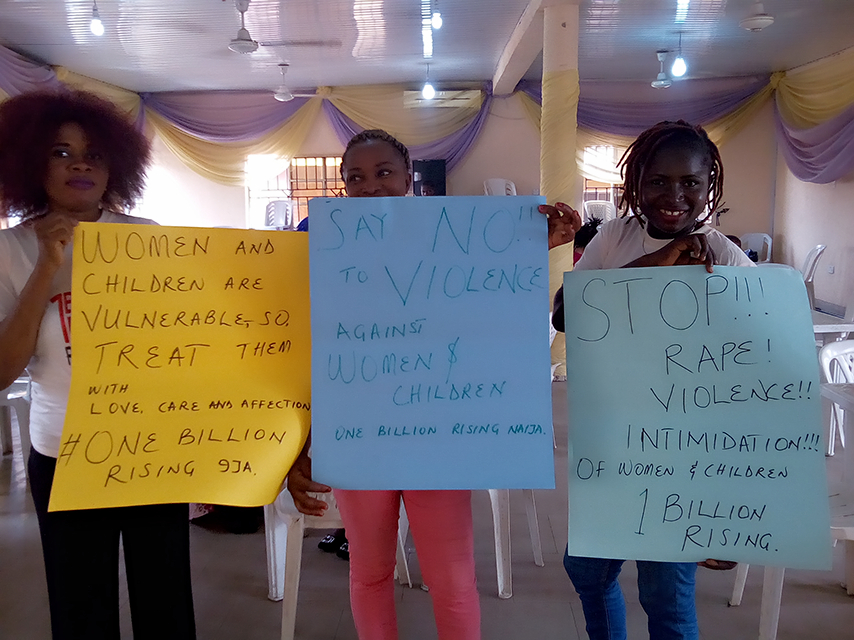 WOMEN AND
CHILDREN ARE
VULNERABLE, SO.
TREAT THEM
WITH
LOVE, CARE AND AFFECTION
#ONE BILLION
RISING 9JA.
SAY NO!!!
TO VIOLENCE
AGAINST
WOMEN &
CHILDREN
ONE BILLION RISING NAIJA.
STOP!!!
RAPE!
VIOLENCE!!
INTIMIDATION!!!
OF WOMEN & CHILDREN
1 BILLION
RISING.